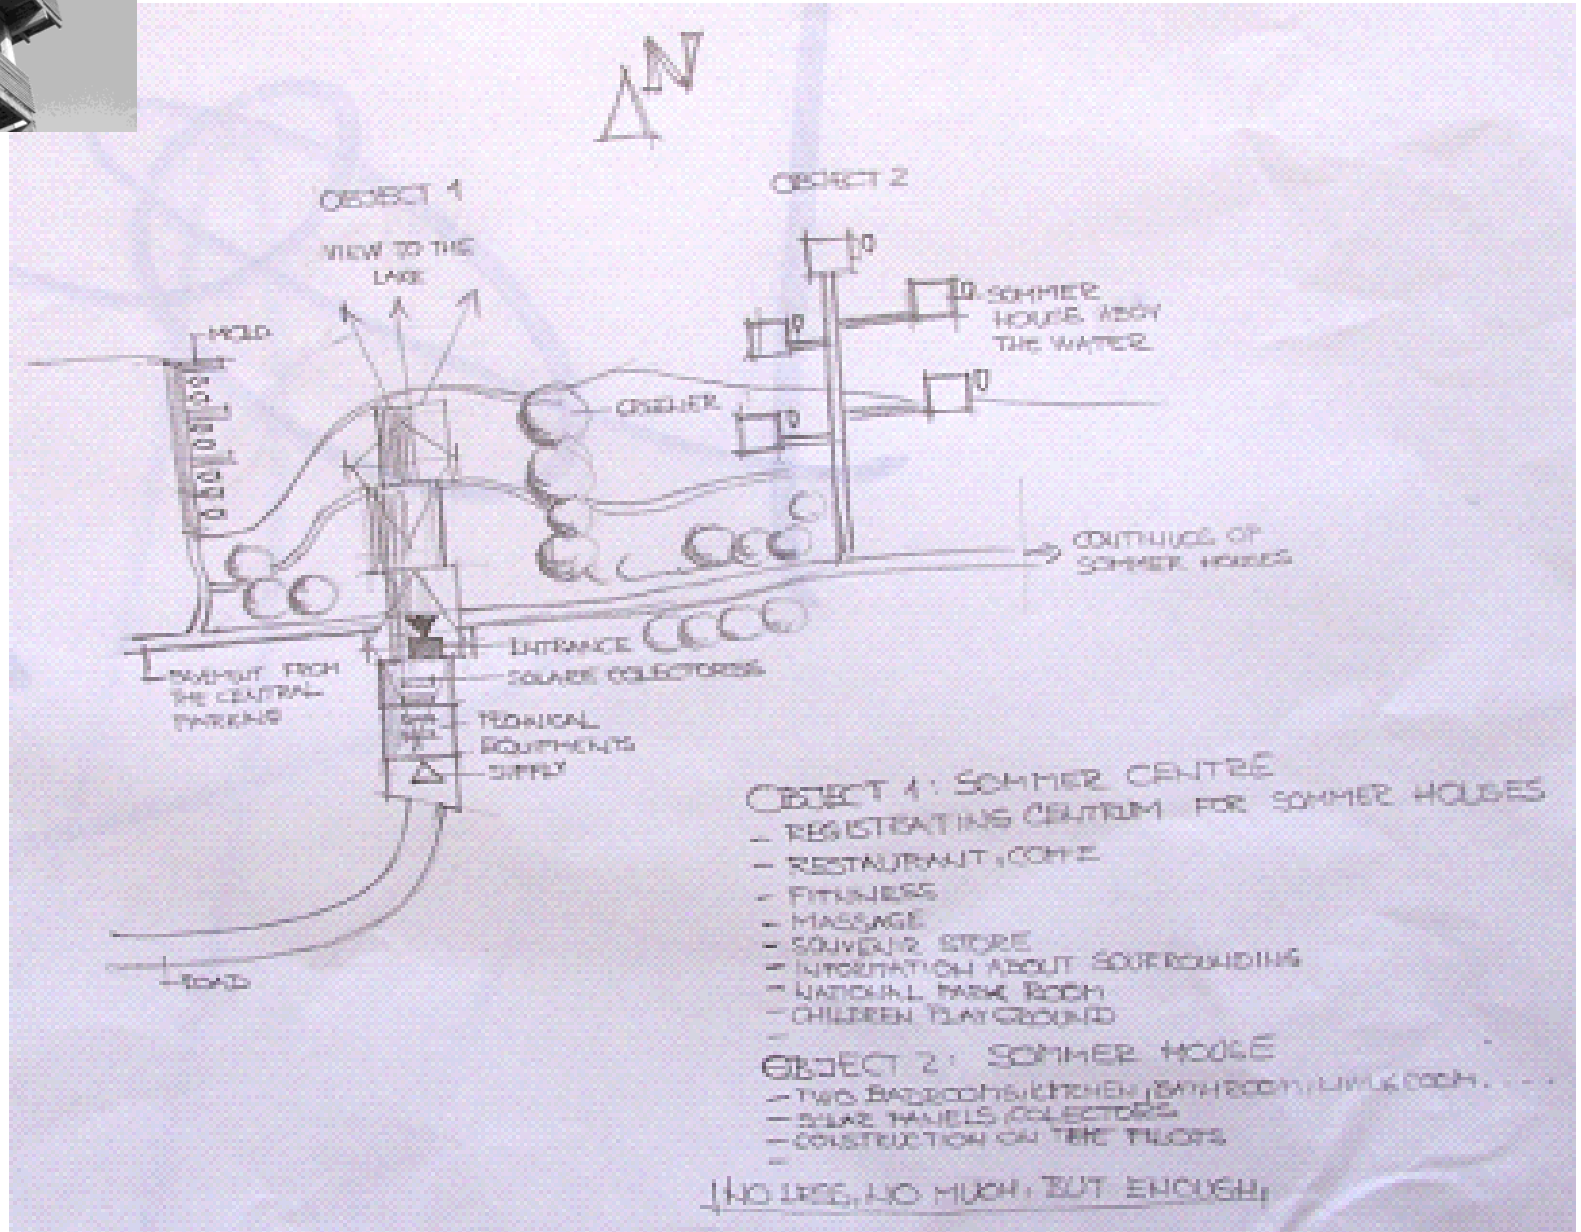 N
OBJECT 1
OBJECT 2
VIEW TO THE
LAKE
MOLO
SOMMER
HOUSE ABOV
THE WATER
CONTINUES OF
SOMMER HOUSES
ENTRANCE
SOLARE COLECTORES
PAVEMENT FROM
THE CENTRAL
PARKING
TECHNICAL
EQUIPMENTS
SUPPLY
ROAD
OBJECT 1: SOMMER CENTRE
- REGISTRATING CENTRUM FOR SOMMER HOUSES
- RESTAURANT, COFFE
- FITNNESS
- MASSAGE
- SOUVENIR STORE
- INFORMATION ABOUT SOURROUNDING
- NATIONAL PARK ROOM
- CHILDREN PLAYGROUND
OBJECT 2: SOMMER HOUSE
- TWO BADROOMS, KITCHEN, BATHROOM, LIVING ROOM....
- SOLAR PANELS, COLECTORS
- CONSTRUCTION ON THE PILOTS
NO LESS, NO MUCH, BUT ENOUGH